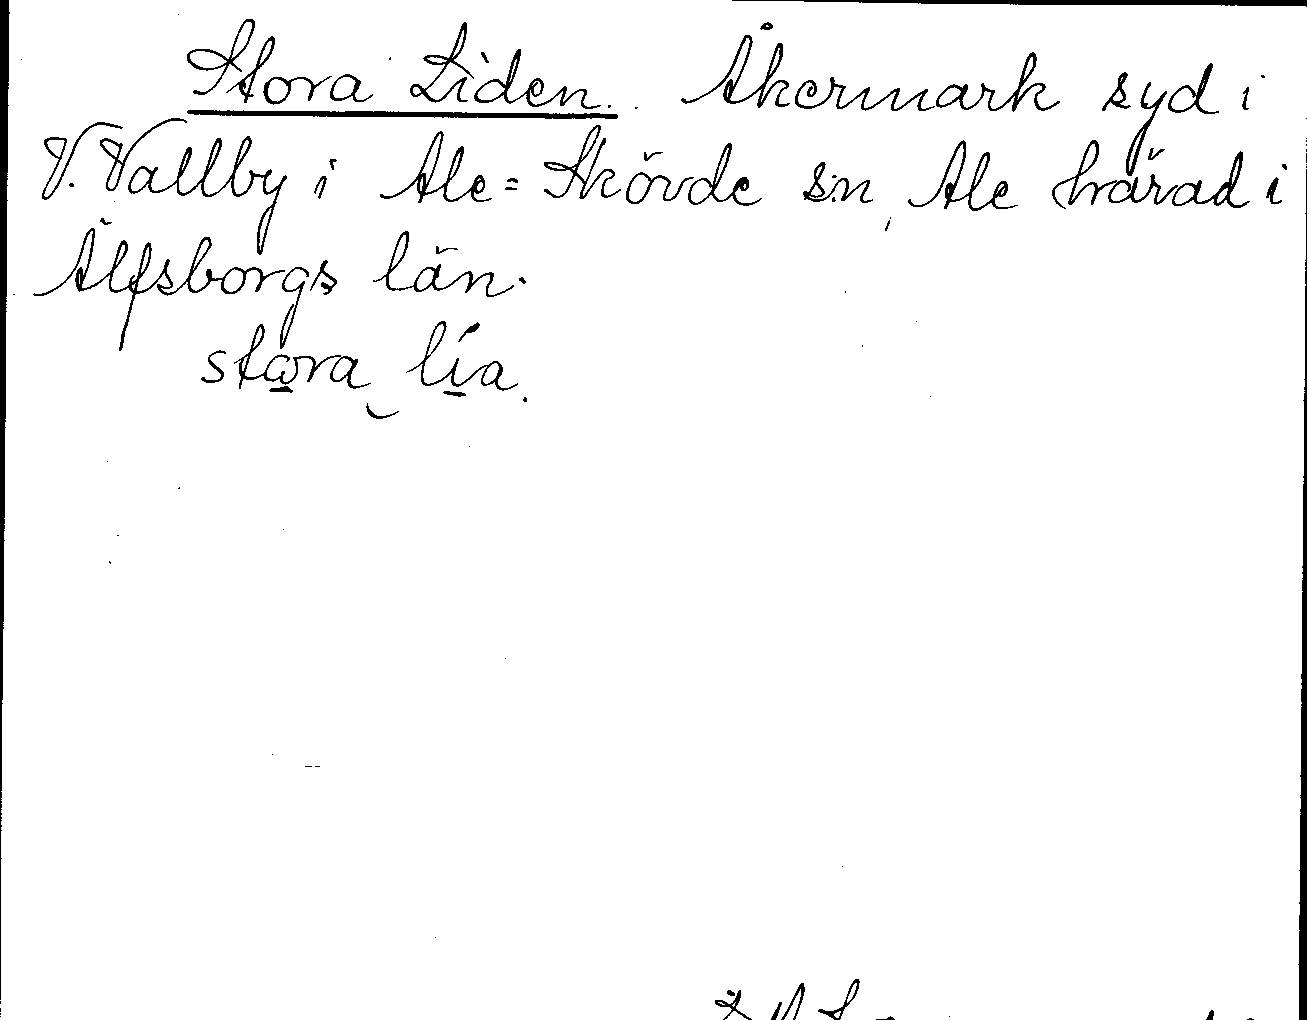 Stora Liden. Åkermark syd i
V. Vallby i Ale=Skövde s:n, Ale härad i
Älfsborgs län.
stora lia.